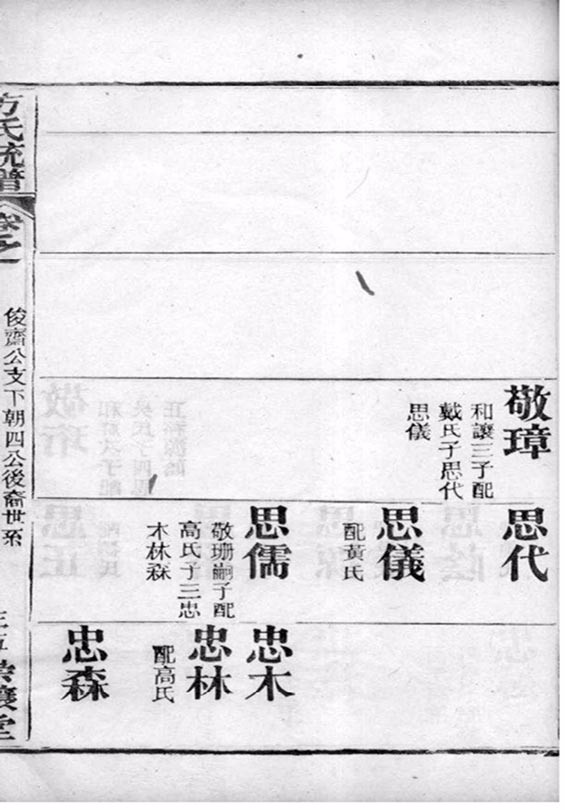 敬璋
和讓三子配
戴氏子思代
思儀
思代
思儀
配黃氏
思儒
敬珊嗣子配
高氏子三忠
木林森
忠木
忠林
配高氏
忠森
方氏統譜
卷之一
俊齋公支下朝四公後裔世系